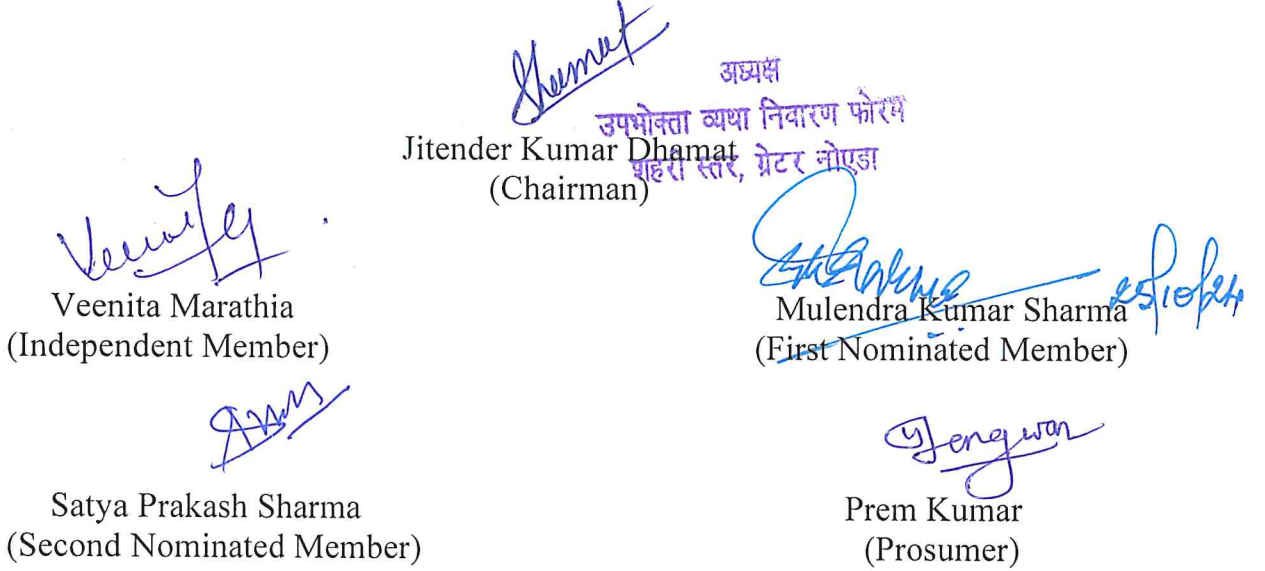 अध्यक्ष
उपभोक्ता व्यथा निवारण फोरम
शहरी स्तर, ग्रेटर नोएडा
Jitender Kumar Dhamat
(Chairman)
Veenita Marathia
(Independent Member)
25/10/24
Mulendra Kumar Sharma
(First Nominated Member)
Satya Prakash Sharma
(Second Nominated Member)
Prem Kumar
(Prosumer)